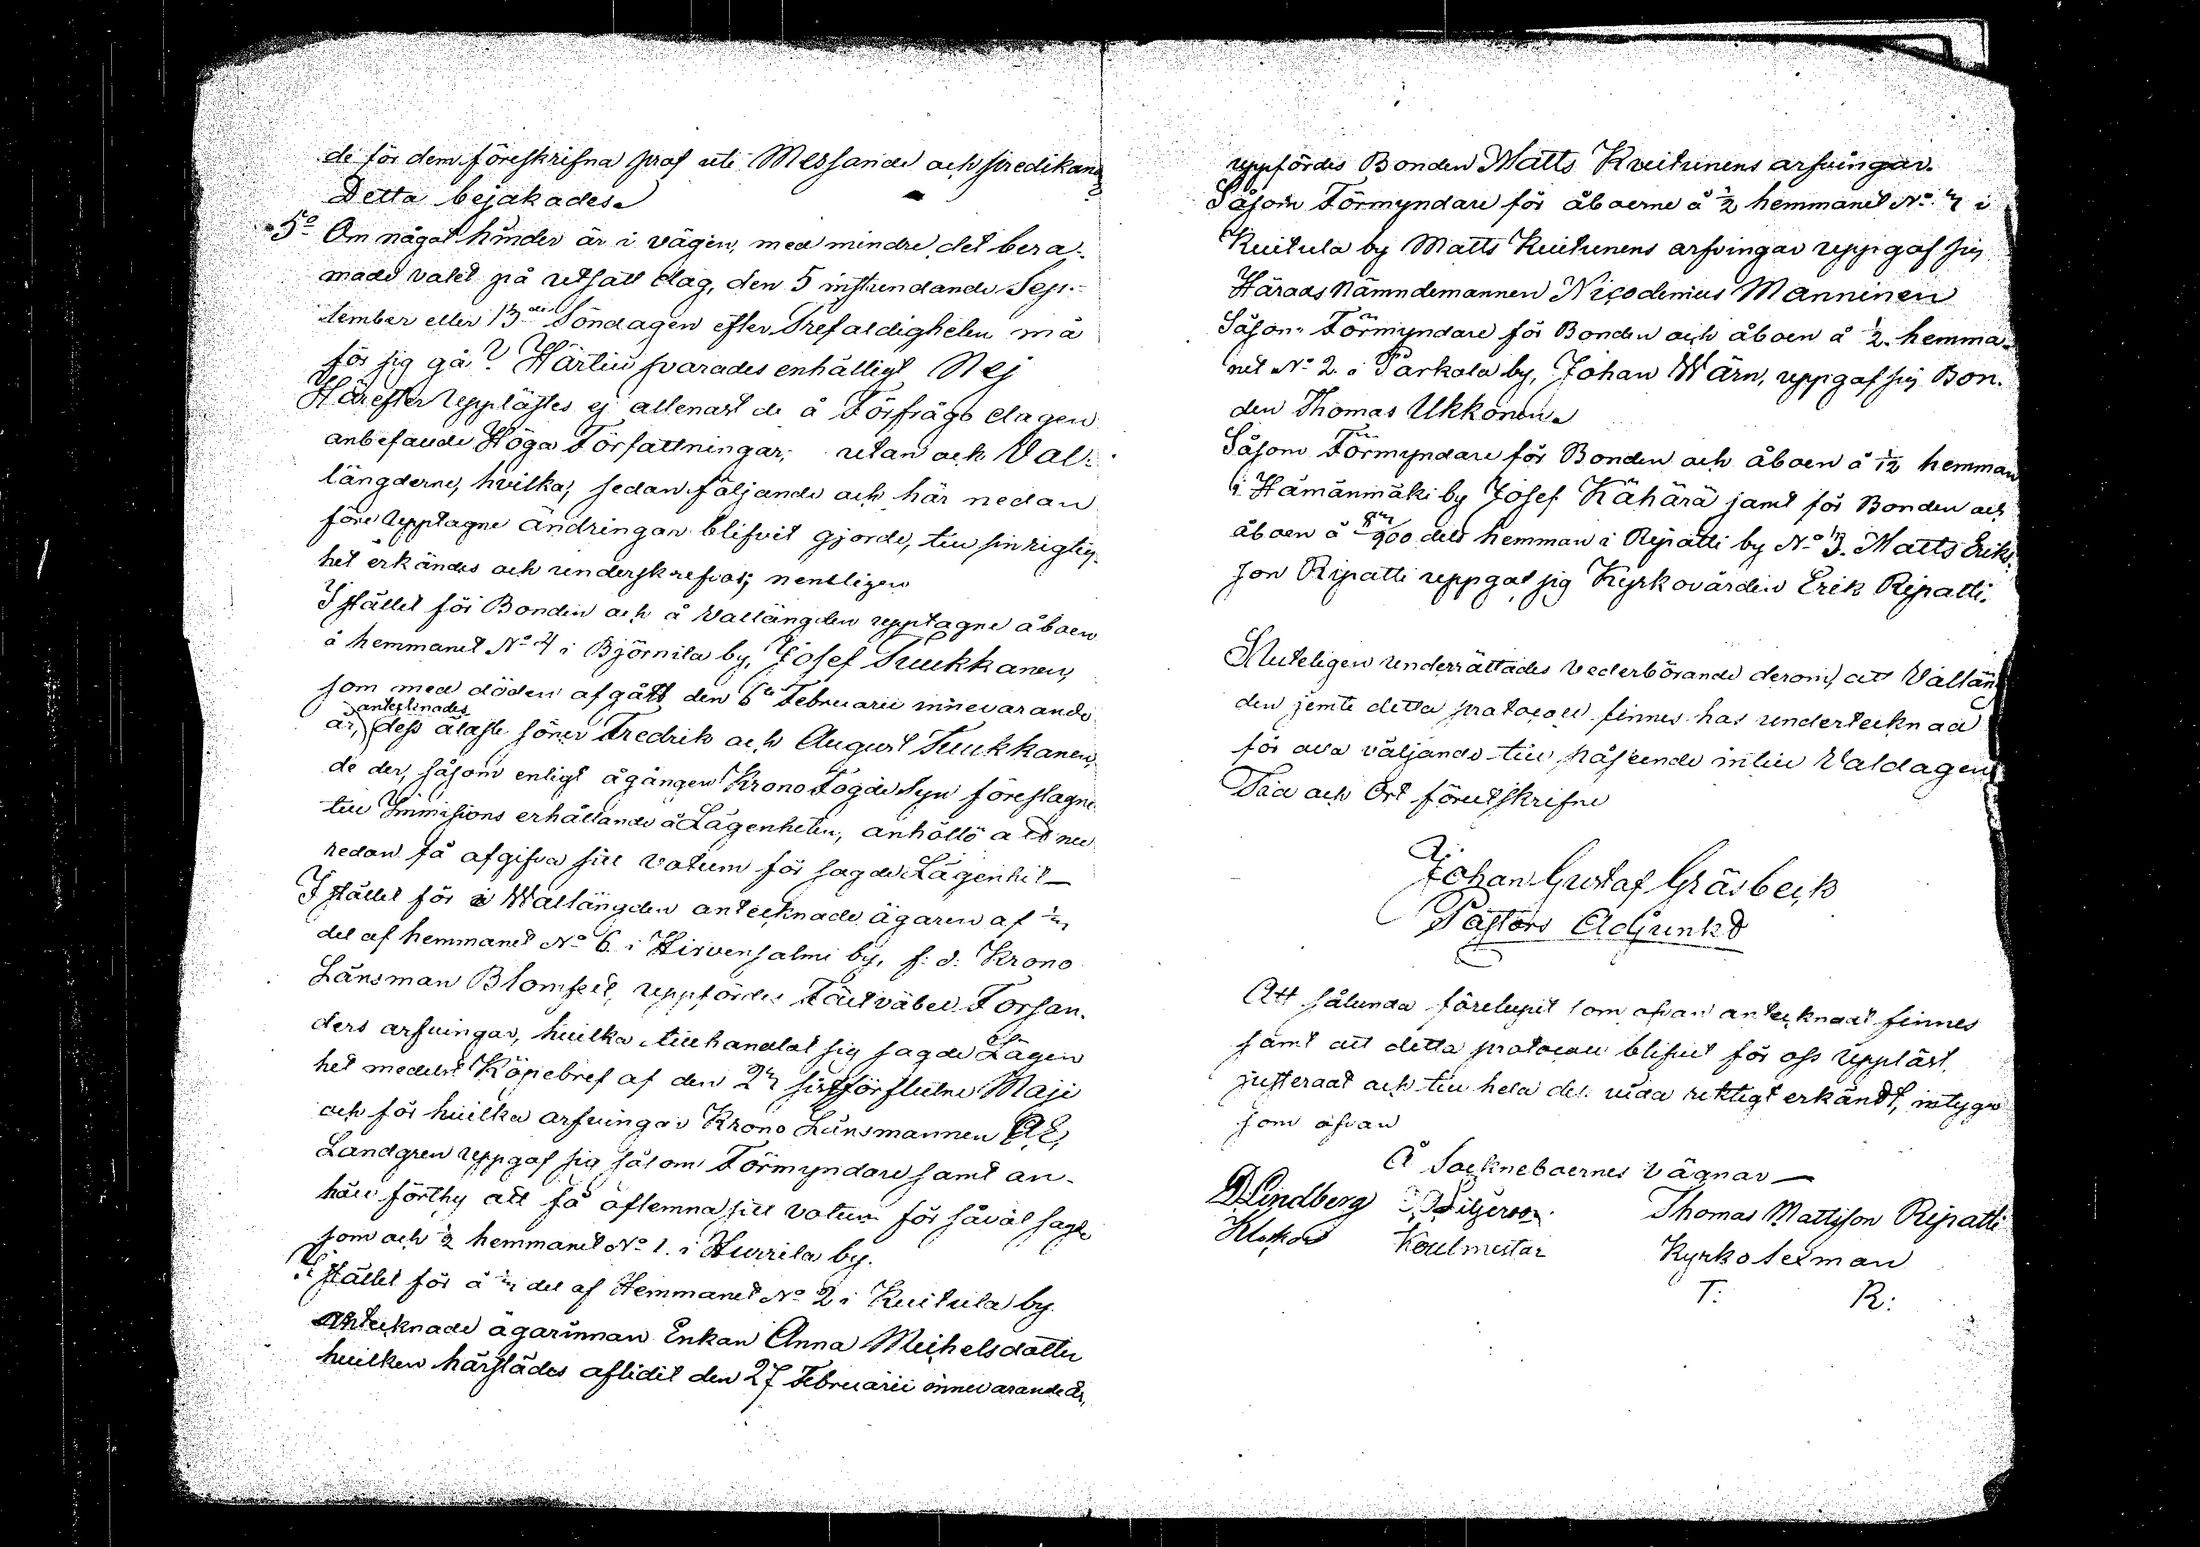 de för dem föreskrifna prof uti Messande och predikande
Detta bejakades.
5o Om något hinder är i vägen, med mindre det bera-
made valet på utsatt dag, den 5 instundande Sep-
tember eller 13de Söndagen efter Trefaldigheten må
för sig gå? Härtill svarades enhälligt Nej
Härefter upplästes ej allenast de å Förfrågo dagen
anbefallde Höga Författningar, utan ock Val-
längderne, hvilka, sedan följande och här nedan
före upptagne ändringar blifvit gjorde, till sin rigtig-
het erkändes och underskrefvos; nemligen
I stället för Bonden och å Vallängden upptagne åboen
å hemmanet No 4 i Björnila by, Josef Tuukkanen,
som med döden afgått den 6te Februarii innevarande
antecknades
år, dess äldste söner Fredrik och August Tuukkanen,
de der, såsom enligt ågången Krono Fogde Syn föreslagne
till Immissions erhållande å Lägenheten, anhöllo att nu
redan få afgifva sitt votum för sagde Lägenhet
I stället för i Wallängden antecknade ägaren af
del af hemmanet No 6 i Hirvensalmi by, f: d: Krono
Länsman Blomfelt, uppfördes Fältväbel Forsan-
ders arfvingar, hvilka tillhandlat sig sagde Lägen
het medelst Köpebref af den sistförflutne Maji
och för hvilka arfvingar Krono Länsmannen A. E.
Landgren uppgaf sig såsom Förmyndare samt an-
höll förthy att få aflemna sitt votum för såväl sagde
som och ½ hemmanet No 1. i Hurrila by.
I stället för å del af Hemmanet No 2 i Kuitula by
antecknade ägarinnan Enkan Anna Michelsdotter
hvilken härstädes aflidit den 27 Februarii innevarande år,
uppfördes Bonden Matts Kuitunens arfvingar.
Såsom Förmyndare för åboerne å ½ hemmanet No i
Kuitula by Matts Kuitunens arfvingar uppgaf sig
Härads Nämndemannen Nicodemus Manninen
Såsom Förmyndare för Bonden och åboen å ½ hemma-
net No 2 i Parkala by, Johan Wärn, uppgaf sig Bon-
den Thomas Ukkonen.
Såsom Förmyndare för Bonden och åboen å hemman
i Hämänmäki by Josef Kähärä samt för Bonden och
åboen å dels hemman i Ripatti by No 3. Matts Eriks-
son Ripatti uppgaf sig Kyrkovärden Erik Ripatti.
Sluteligen underrättades vederbörande derom, att Vallän
den jemte detta protocoll finnes hos undertecknad
för alla väljande till påseende intill Valdagen
Tid och Ort förutskrifne
Johan Gustaf Gräsbeck
Pastors Adjunkt
Att sålunda förelupit som ofvan antecknadt finnes
samt att detta protocoll blifvit för oss uppläst,
justeradt och till hela des vidd riktigt erkändt, intyga
som ofvan
Å Sockneboernes vägnar
D. Lindberg
Thomas Mattsson Ripatti
Klockare
Kyrko sexman
T: R: